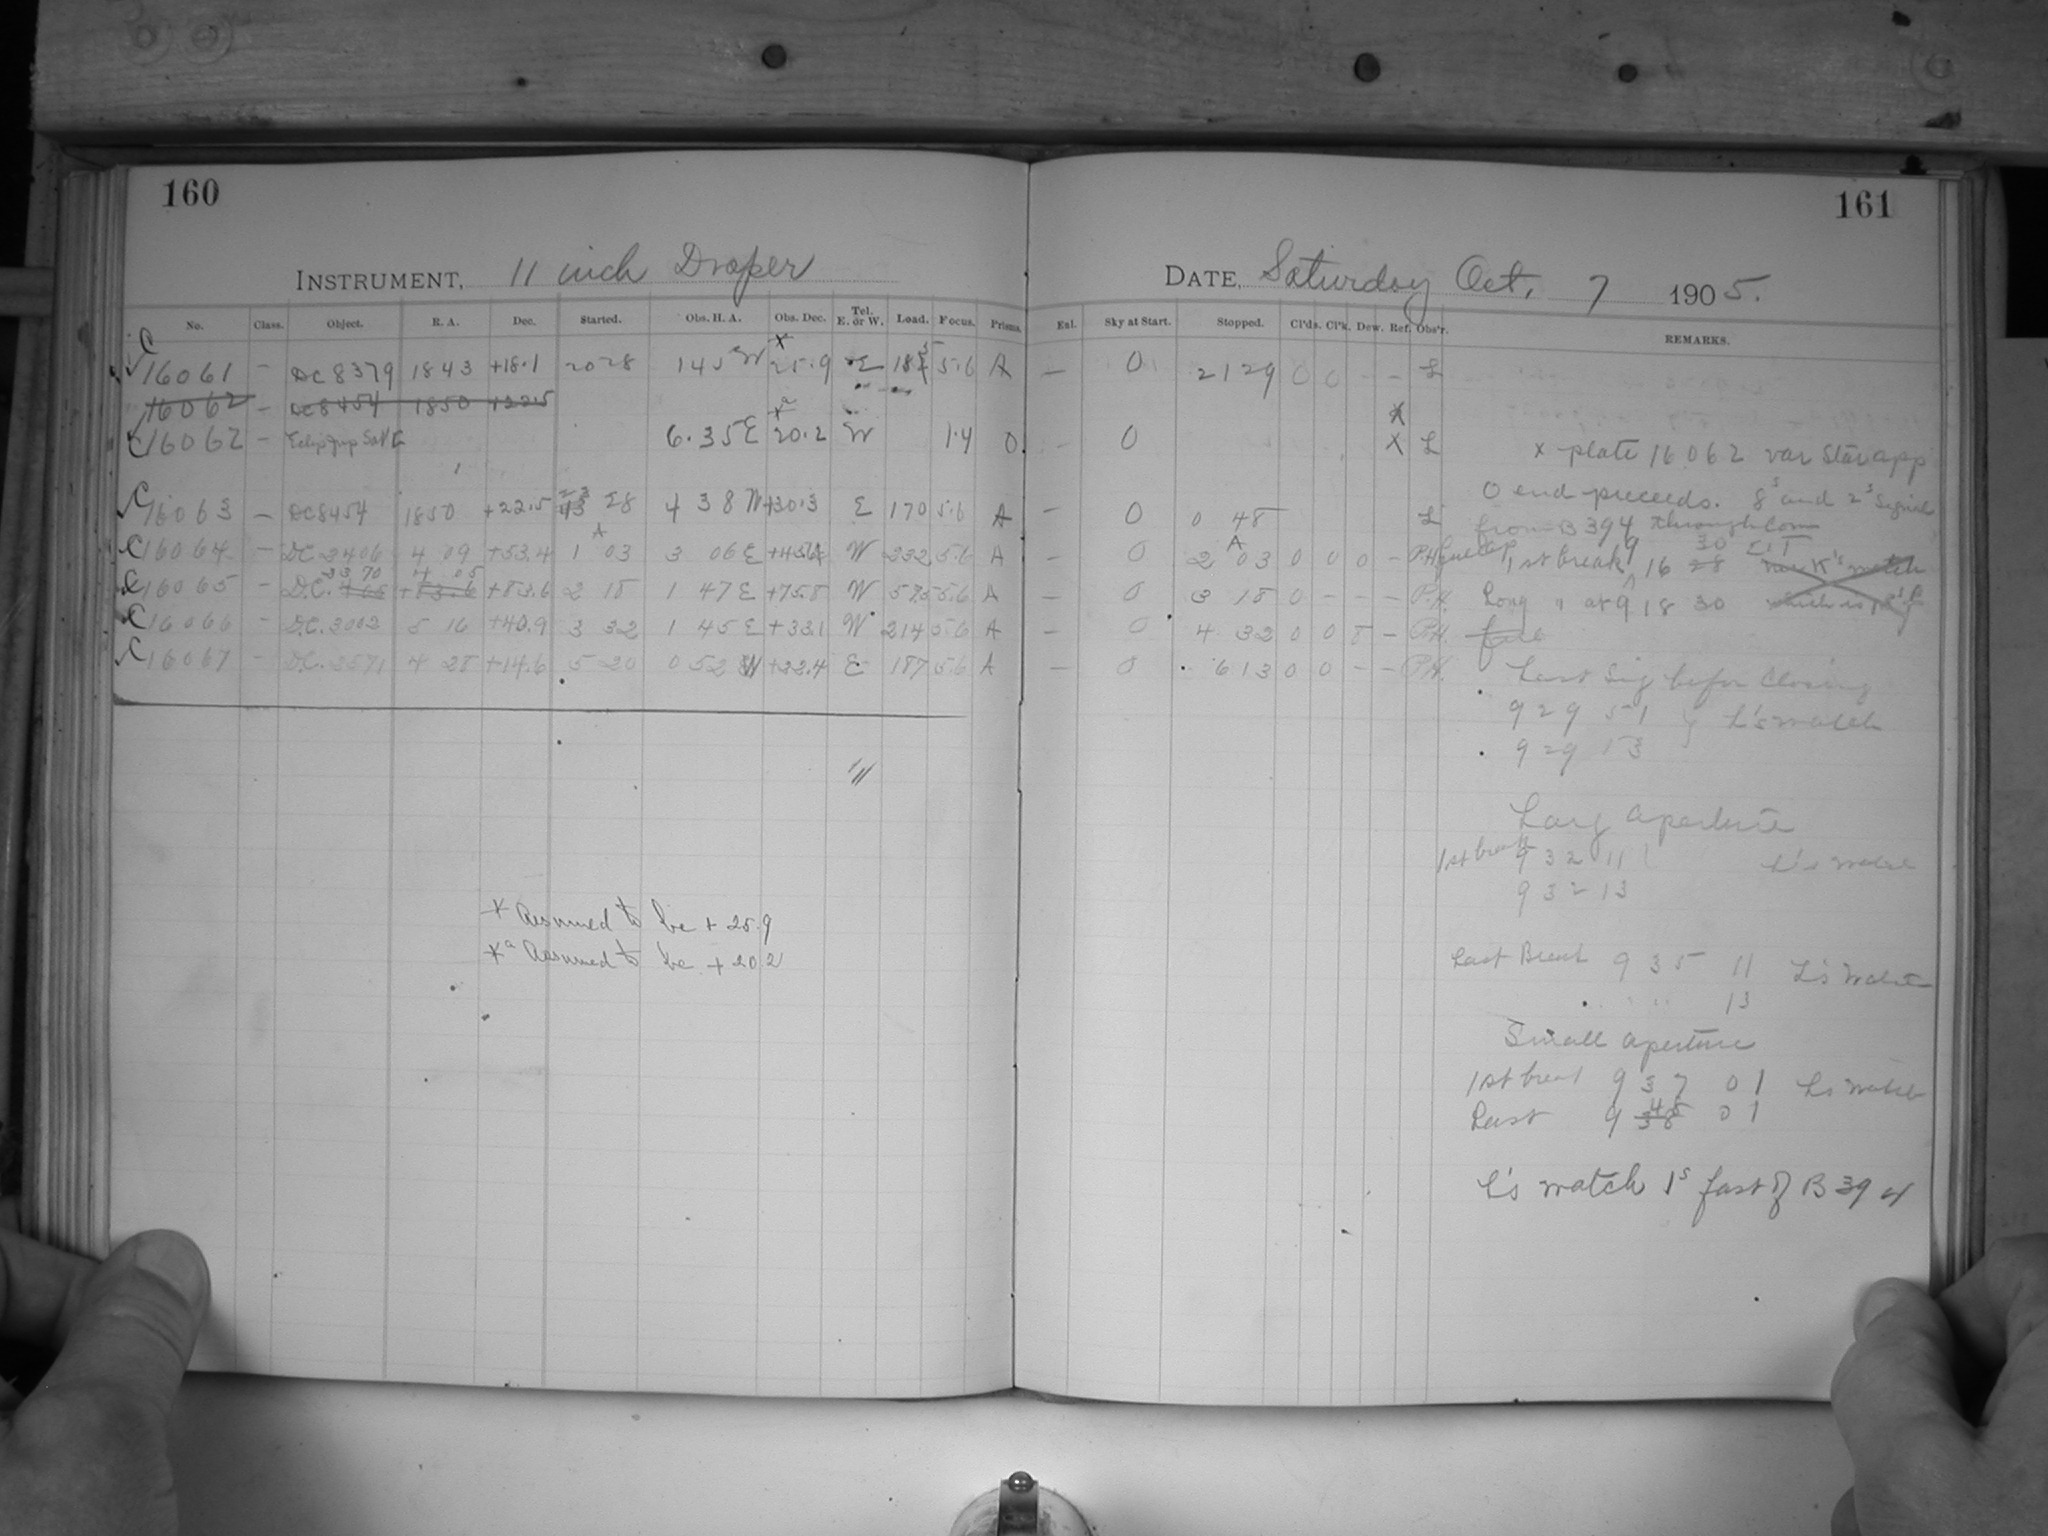 160
INSTRUMENT, 11 inch Draper
No. Class. Object. R. A. Dec. Started. Obs. H. A. Obs. Dec. Tel. E. or W. Load. Focus. Prisms.
C 16061 – DC 8379 1843 +18.1 20 28 1 45 W x 25.9 E 5.6 A
16062 – DC 8454 1850 +22.5
C 16062 – Eclip Jup Sat 6.35 E xa 20.2 W 1.4 0
C 16063 – DC 8454 1850 +22.5 23 28 4 38 W +30.3 E 170 5.6 A
C 16064 – DC 2406 4 09 +53.4 1 03 3 06 E W 232 5.6 A
C 16065 – D.C. 3370 4 05 +83.6 2 18 1 47 E +75.8 W 575 5.6 A
C 16066 – D.C. 3002 5 16 +40.9 3 32 1 45 E +33.1 W 214 5.6 A
C 16067 – D.C. 2571 4 28 +14.6 5 20 0 52 W +22.4 E 187 5.6 A
* Assumed to be + 25.9
*a Assumed to be + 20.2
161
DATE, Saturday Oct. 7 1905.
Enl. Sky at Start. Stopped. Cl'ds. Cl'k. Dew. Ref. Obs'r. REMARKS.
– 0 21 29 0 0 – – L
x
– 0 x L x plate 16062 var Star app
0 end preceeds. 8s and 2s Signal
– 0 0 48 L from B 394 through Com
– 0 2 03 0 0 0 – P.H. 1st break 9 16 30
– 0 3 18 0 – – – P.H. Long " at 9 18 30
– 0 4 32 0 0 8 – P.H.
– 0 6 13 0 0 – – P.H. Last Sig befor Closing
9 29 51 L's watch
9 29 53
Larg aperture
1st break 9 32 11 L's watch
9 32 13
Last Break 9 35 11 L's Watch
" " 13
Small aperture
1st break 9 37 01 L's watch
Last 9 45 01
L's watch 1s fast of B 394